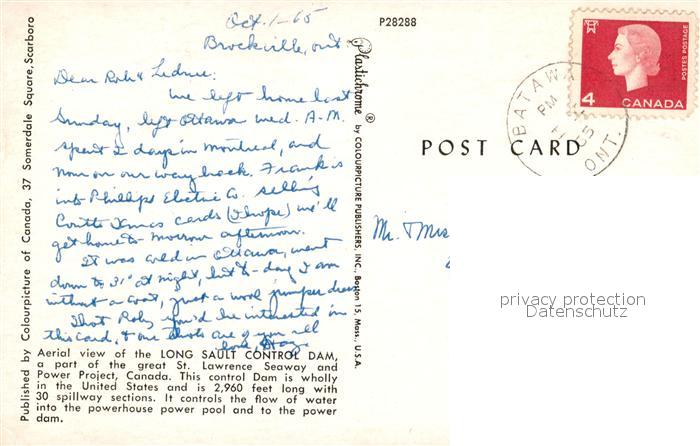 Oct. 1-65
Brockville, Ont.
Dear Rob &
we left home last
Sunday, left Ottawa wed. A.M.
spent 2 days in Montreal, and
now on our way back. Frank is
into Phillips Electric Co. selling
Coutts Xmas cards (I hope) we'll
get home to-morrow afternoon.
It was cold in Ottawa, went
down to 31° at night, but to-day I am
without a coat, just a wool jumper dress
you'd be interested in
this card, & our are of you all
love,
Aerial view of the LONG SAULT CONTROL DAM,
a part of the great St. Lawrence Seaway and
Power Project, Canada. This control Dam is wholly
in the United States and is 2,960 feet long with
30 spillway sections. It controls the flow of water
into the powerhouse power pool and to the power
dam.
Published by Colourpicture of Canada, 37 Somerdale Square, Scarboro
Plastichrome ® by COLOURPICTURE PUBLISHERS, INC., Boston 15, Mass., U.S.A.
P28288
POST CARD
BATAWA
PM
65
ONT.
4 CANADA
POSTES POSTAGE
Mr. & Mrs
privacy protection
Datenschutz